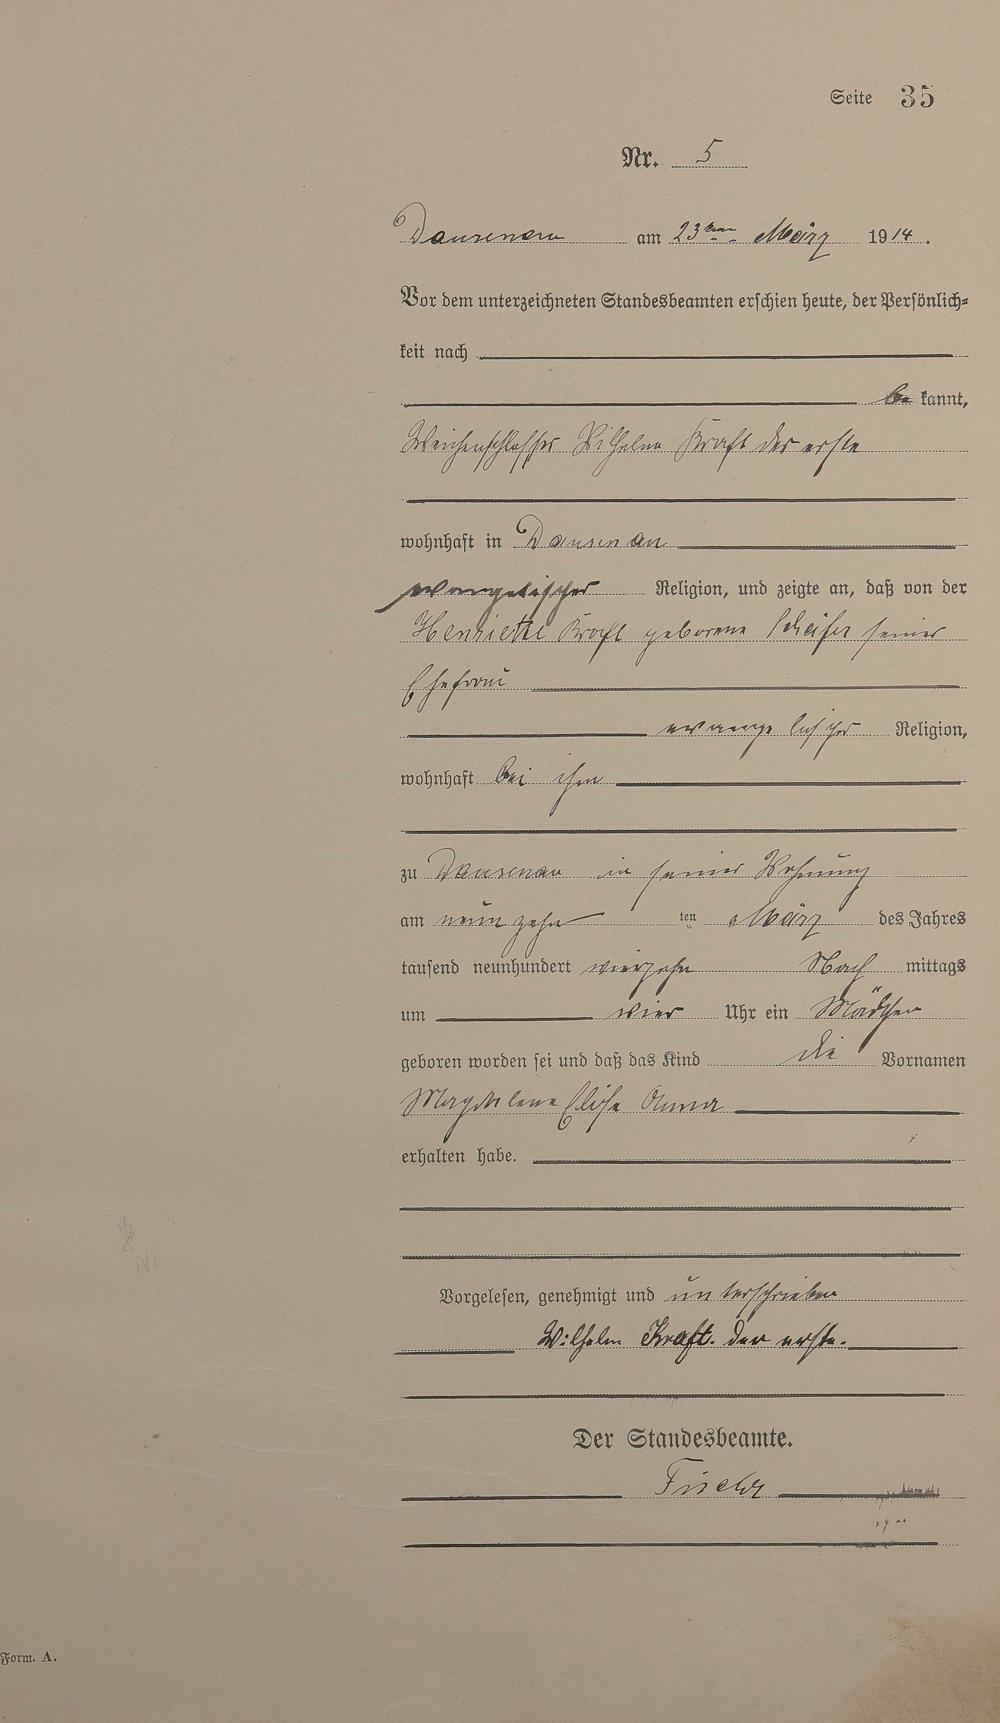 Seite 35
Nr. 5
Dausenau am 23ten März 1914.
Vor dem unterzeichneten Standesbeamten erschien heute, der Persönlich=
keit nach
be kannt,
Weichenschlosser Wilhelm Kraft der erste
wohnhaft in Dausenau
evangelischer Religion, und zeigte an, daß von der
Henriette Kraft geborene Schäfer seiner
Ehefrau
evangelischer Religion,
wohnhaft bei ihm
zu Dausenau in seiner Wohnung
am neunzehn ten März des Jahres
tausend neunhundert vierzehn Nach mittags
um vier Uhr ein Mädchen
geboren worden sei und daß das Kind die Vornamen
Magdalene Elise Anna
erhalten habe.
Vorgelesen, genehmigt und unterschrieben
Wilhelm Kraft. der erste.
Der Standesbeamte.
Form. A.